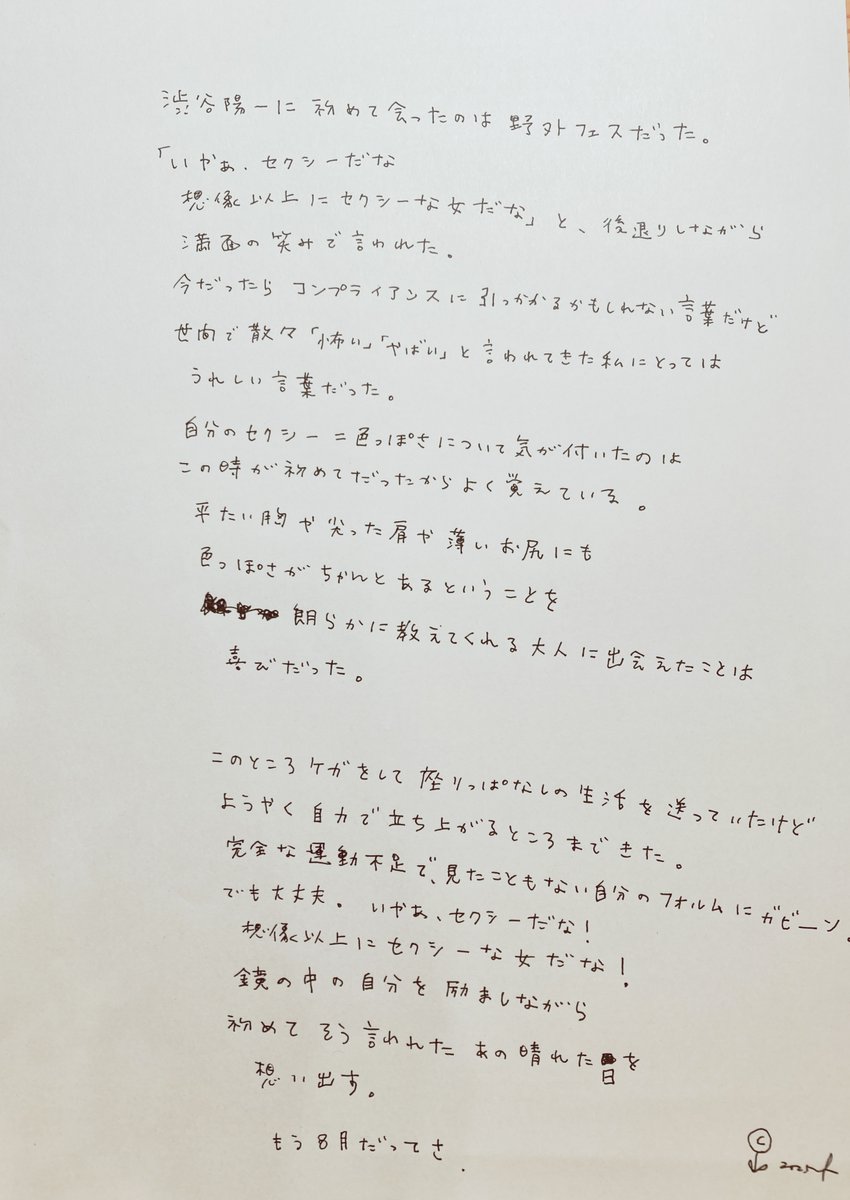 渋谷陽一に初めて会ったのは野外フェスだった。
「いやぁ、セクシーだな
想像以上にセクシーな女だな」と、後退りしながら
満面の笑みで言われた。
今だったらコンプライアンスに引っかかるかもしれない言葉だけど
世間で散々「怖い」「やばい」と言われてきた私にとっては
うれしい言葉だった。
自分のセクシー=色っぽさについて気が付いたのは
この時が初めてだったからよく覚えている。
平たい胸や尖った肩や薄いお尻にも
色っぽさがちゃんとあるということを
朗らかに教えてくれる大人に出会えたことは
喜びだった。
このところケガをして座りっぱなしの生活を送っていたけど
ようやく自力で立ち上がるところまできた。
完全な運動不足で、見たこともない自分のフォルムにガビーン。
でも大丈夫。いやあ、セクシーだな!
想像以上にセクシーな女だな!
鏡の中の自分を励ましながら
初めてそう言われたあの晴れた日を
想い出す。
もう8月だってさ.
©